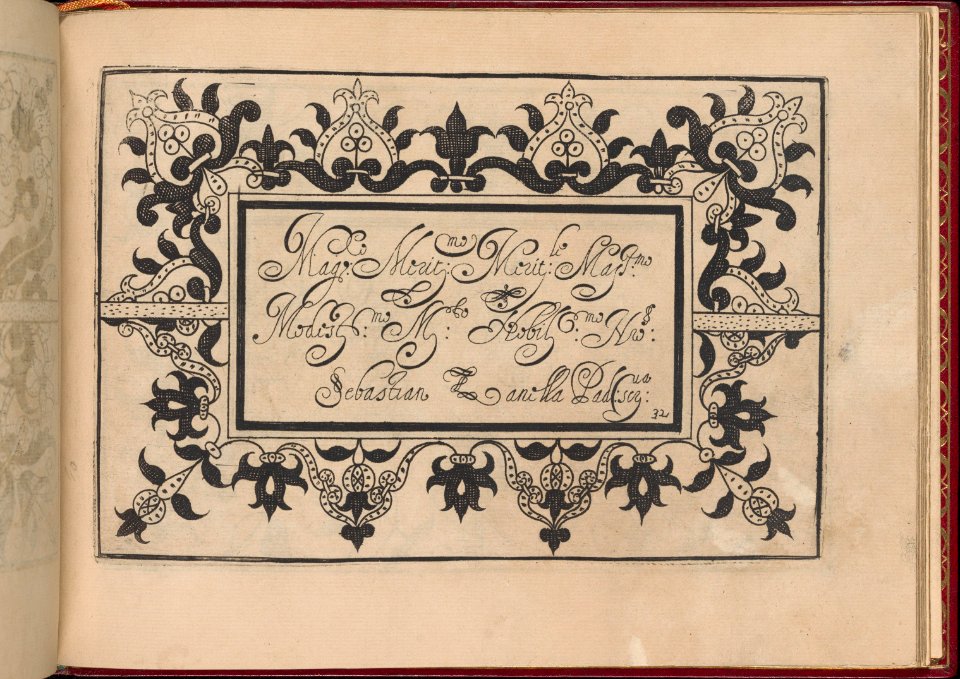 Mag.co Merit:mo Merit:le Mag.mo
Modest:mo M:to Nobil:mo Nro$:
Sebastian Zanella Pad: scr:
32